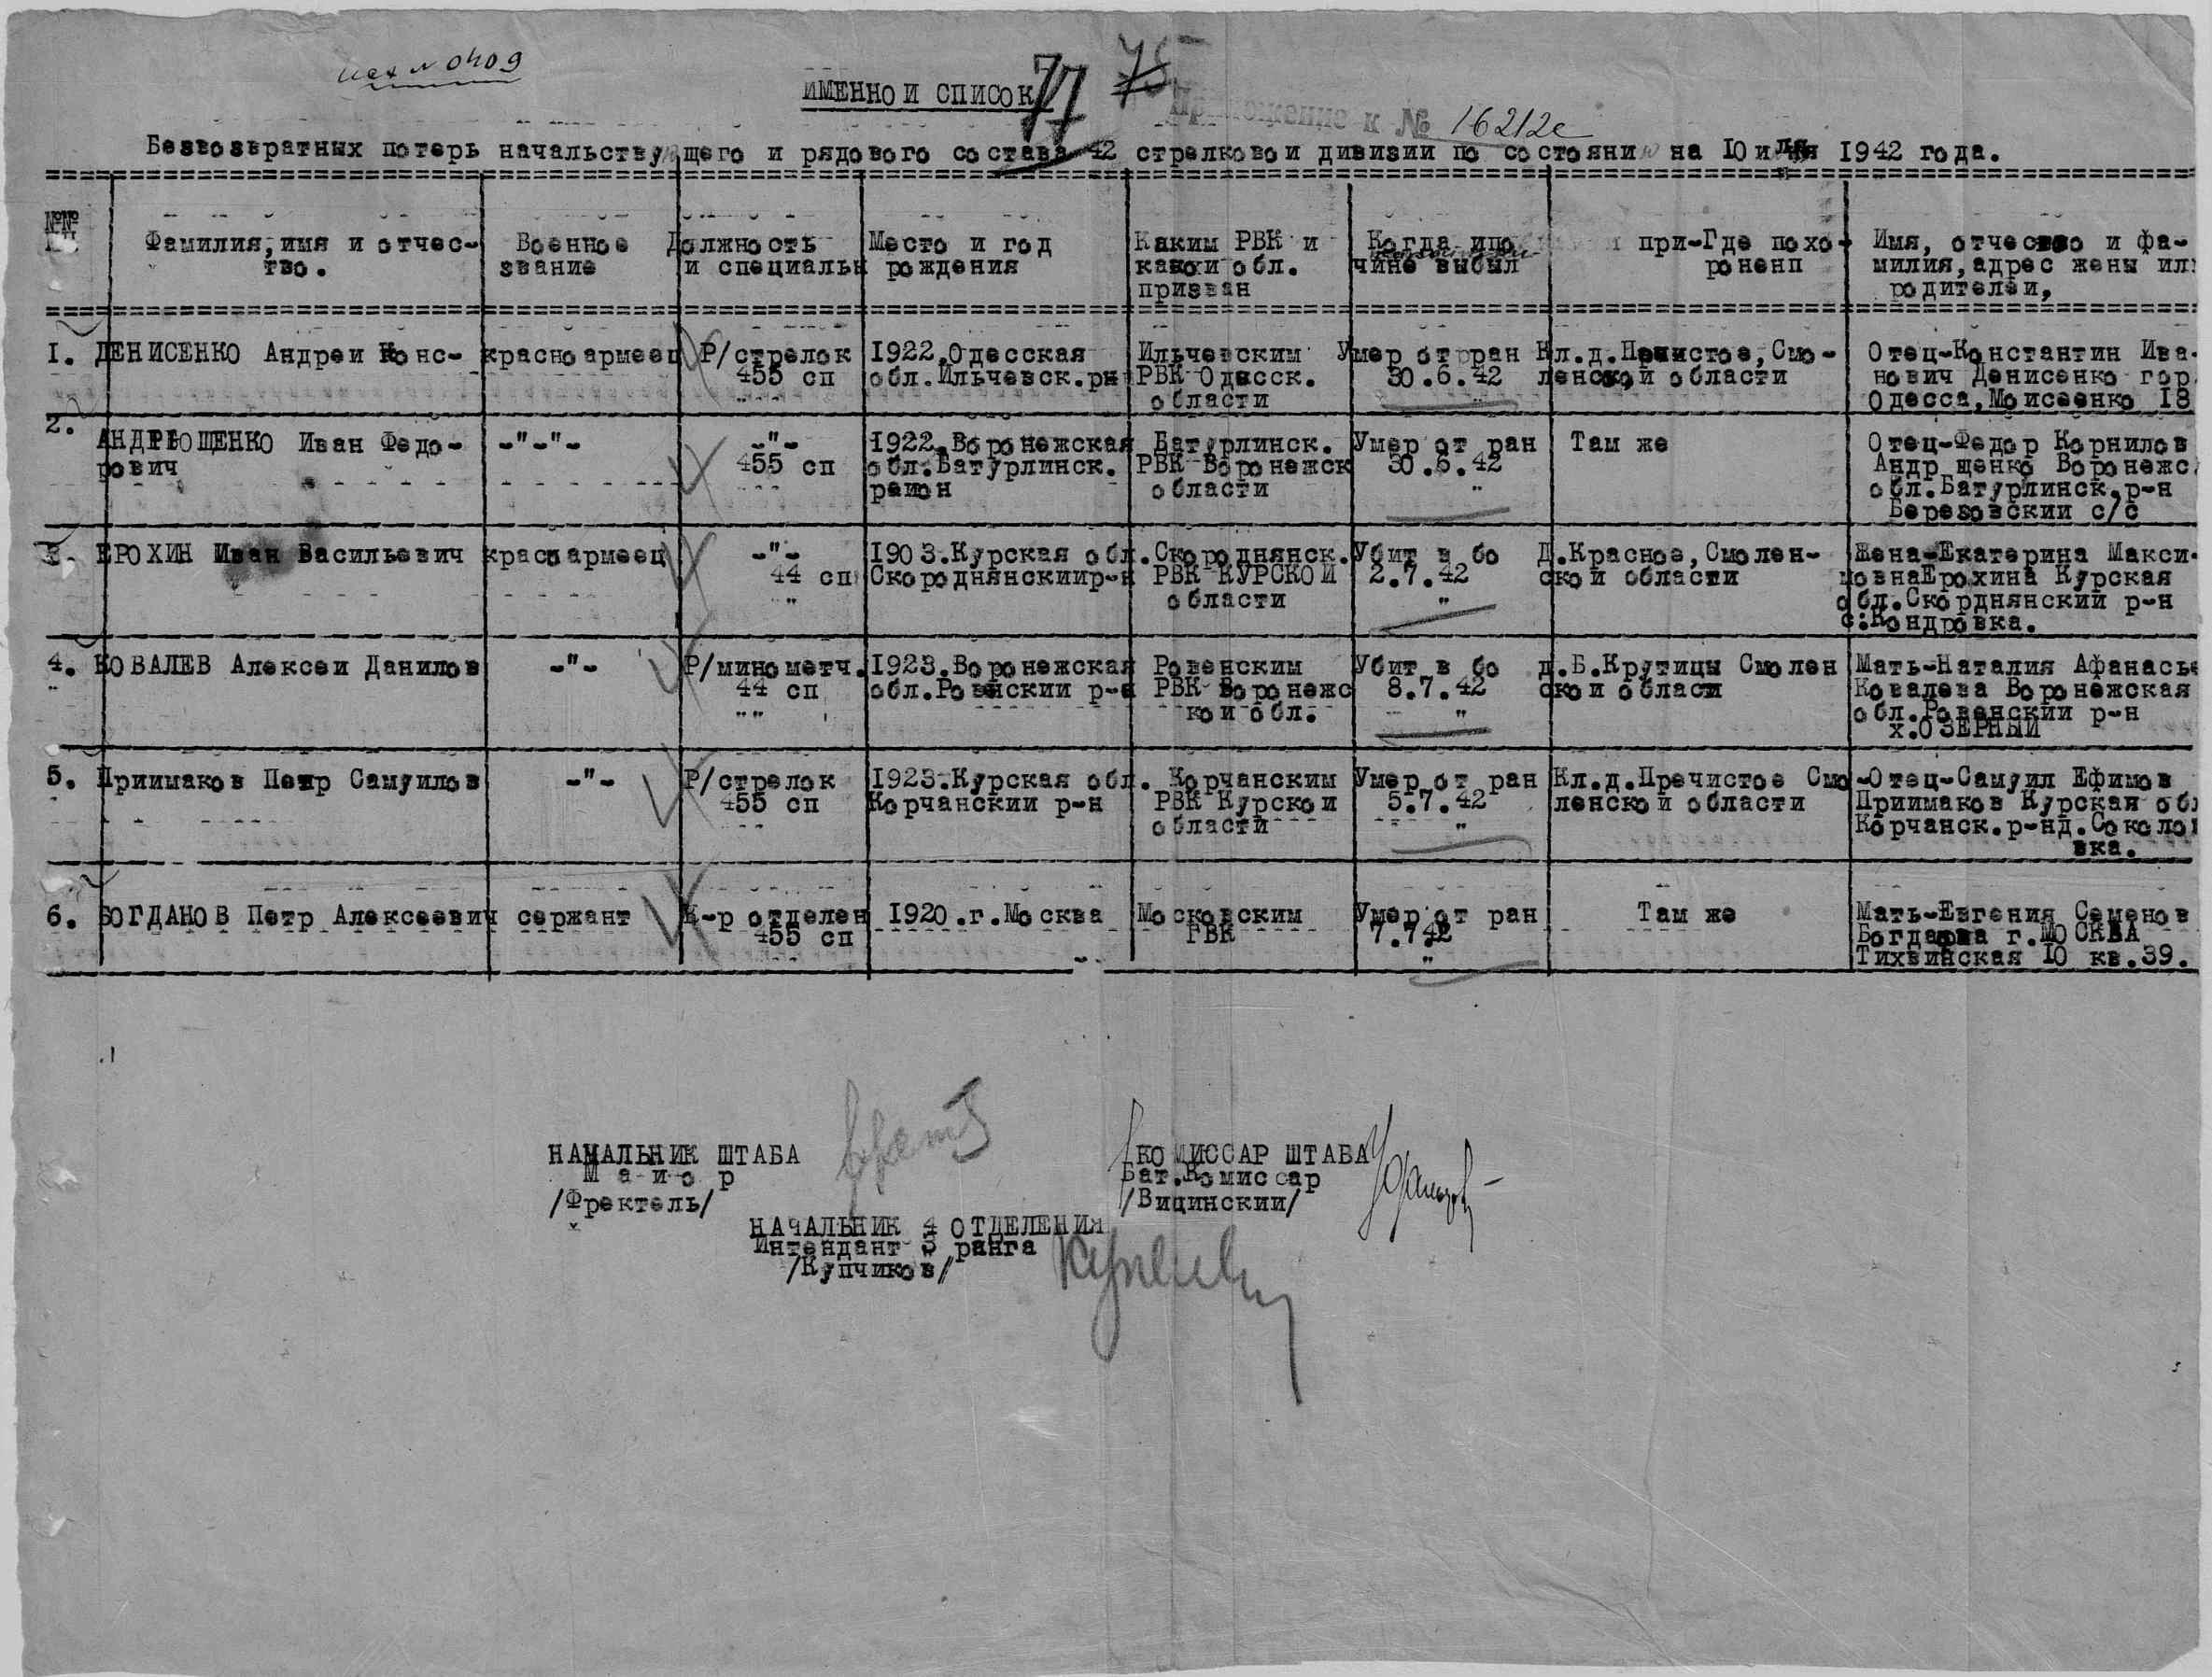 исх № 0409
ИМЕННОИ СПИСОК
77 75
Приложение к № 16212с
Безвозвратных потерь начальствующего и рядового состава 42 стрелковои дивизии по состоянию на 10 июля 1942 года.
№№
Фамилия, имя и отчес-
тво.
Военное
звание
Должность
и специальн
Место и год
рождения
Каким РВК и
какои обл.
призван
Когда ипо при-
чине выбыл
Где похо-
роненп
Имя, отчество и фа-
милия, адрес жены или
родителеи,
1. ДЕНИСЕНКО Андреи Конс-
красноармеец
Р/стрелок
455 сп
1922.Одесская
обл.Ильчевск.рн
Ильчевским
РВК Одесск.
области
Умер от ран
30.6.42
Кл.д.Печистое, Смо-
ленской области
Отец-Константин Ива-
нович Денисенко гор.
Одесса, Моисеенко 18
2. АНДРЮЩЕНКО Иван Федо-
рович
-"-"-
-"-
455 сп
1922.Воронежская
обл.Батурлинск.
раион
Батурлинск.
РВК Воронежск
области
Умер от ран
30.6.42
"
Там же
Отец-Федор Корнилов
Андр щенко Воронежс.
обл.Батурлинск.р-н
Березовскии с/с
3. ЕРОХИН Иван Васильевич
красоармеец
-"-
44 сп
"
1903.Курская обл.
Скороднянскиир-н
Скороднянск.
РВК КУРСКОИ
области
Убит в бо
2.7.42
"
Д.Красное, Смолен-
скои области
Жена-Екатерина Макси-
мовнаЕрохина Курская
обл.Скорднянский р-н
с.Кондровка.
4. КОВАЛЕВ Алексеи Данилов
-"-
Р/минометч.
44 сп
""
1923.Воронежская
обл.Ровенскии р-н
Ровенским
РВК Воронежс
кои обл.
Убит в бо
8.7.42
"
д.Б.Крутицы Смолен
скои области
Мать-Наталия Афанасье
Ковалева Воронежская
обл.Ровенскии р-н
х.ОЗЕРНЫЙ
5. Приимаков Петр Самуилов
-"-
Р/стрелок
455 сп
1923.Курская обл.
Корчанскии р-н
Корчанским
РВК Курскои
области
Умер от ран
5.7.42
"
Кл.д.Пречистое Смо-
ленскои области
Отец-Самуил Ефимов
Приимаков Курская обл
Корчанск.р-нд.Соколов
вка.
6. БОГДАНОВ Петр Алексеевич
сержант
К-р отделен
455 сп
1920.г.Москва
Московским
ГВК
Умер от ран
7.7.42
"
Там же
Мать-Евгения Семенов
Богданва г.МОСКВА
Тихвинская 10 кв.39.
НАЧАЛЬНИК ШТАБА
М а и о р
/Фректель/
КОМИССАР ШТАБА
Бат.Комиссар
/Вицинскии/
НАЧАЛЬНИК 4 ОТДЕЛЕНИЯ
Интендант 3 ранга
/Купчиков/